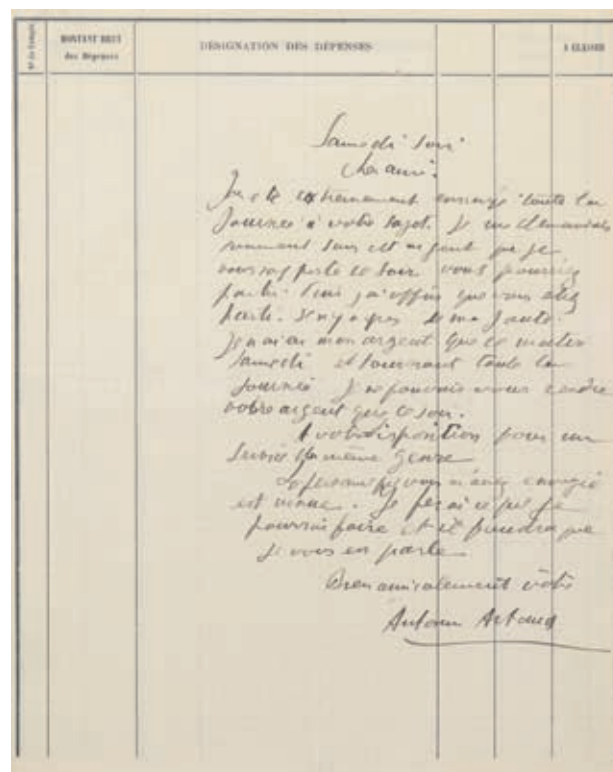 N° de Compte
MONTANT BRUT
des Dépenses
DÉSIGNATION DES DÉPENSES
A CLASSER
Samedi soir
Cher ami.
J'ai été extrêmement toute la
journée à votre sujet. Je me demandais
sans cet argent que je
vous rapporte ce soir vous pourriez
partir. Puis j'ai appris que vous étiez
parti. Il n'y a pas de ma faute.
Je n'ai eu mon argent que ce matin
Samedi et tournant toute la
journée je ne pouvais vous rendre
votre argent que ce soir.
A votre disposition pour un
service du même genre
La personne que vous m'avez envoyée
est venue. Je ferai ce que je
pourrai faire et il faudra que
je vous en parle
Bien amicalement vôtre
Antonin Artaud